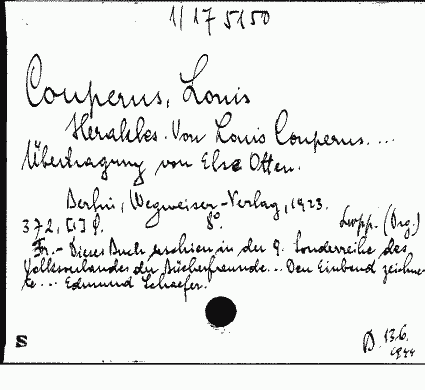 1/175150
Couperus, Louis
Herakles. Von Louis Couperus....
Übertragung von Else Otten.
Berlin, Wegweiser-Verlag, 1923.
372, [1] S. 8°. (Org.)
Fr.- Dieses Buch erschien in der 9. Sonderreihe des
Volksverbandes der Bücherfreunde... Den Einband zeichne-
te... Edmund Schaefer.
S
D. 13.6.
1944